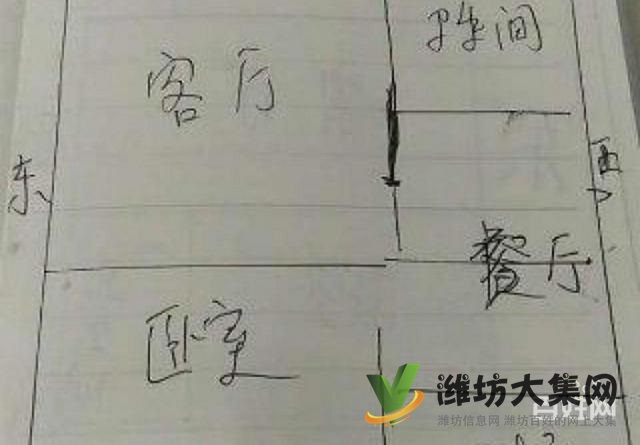 卫生间
客厅
东
西
餐厅
卧室
潍坊大集网
潍坊信息网 潍坊百姓的网上大集
百姓网